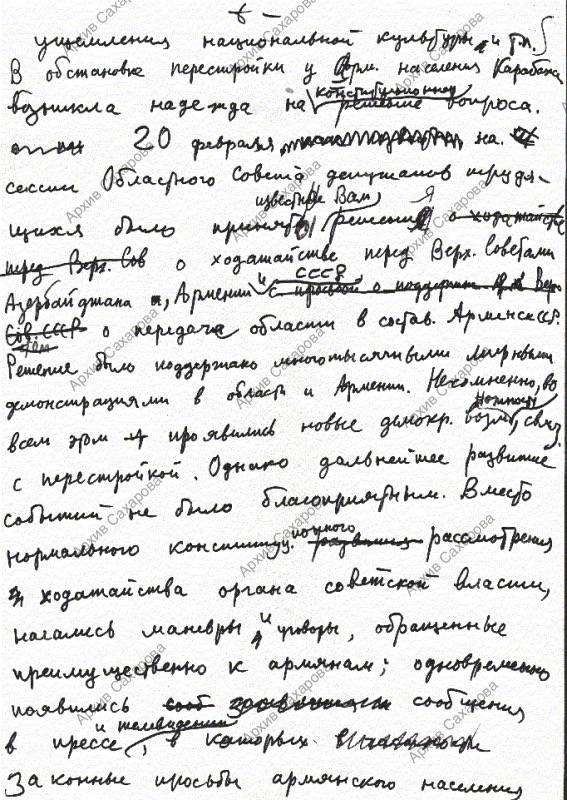 ущемления национальной культуры, и т.п.
В обстановке перестройки у Арм. населения Карабаха
конституционное
возникла надежда на решение вопроса.
20 февраля на
сессии Областного Совета депутатов трудя-
известное Вам
щихся было принято решение о ходатайстве
перед Верх. Сов о ходатайстве перед Верх. Советами
СССР
Азербайджана и Армении с просьбой о поддержке Верх.
Сов. СССР о передаче области в состав Армянск ССР.
Решение было поддержано многотысячными мирными
демонстрациями в области и Армении. Несомненно, во
можности
всем этом проявились новые демокр. возм, связ.
с перестройкой. Однако дальнейшее развитие
событий не было благоприятным. Вместо
ионного
нормального конституц. развития рассмотрения
ходатайства органа советской власти,
и
начались маневры, уговоры, обращенные
преимущественно к армянам; одновременно
появились сооб сообщения
и телевидении
в прессе, в которых
законные просьбы армянского населения
Архив Сахарова